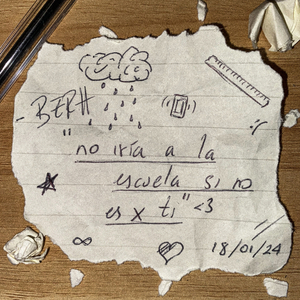 - BERH
"no iría a la
escuela si no
es x ti" <3
:(
∞
18/01/24